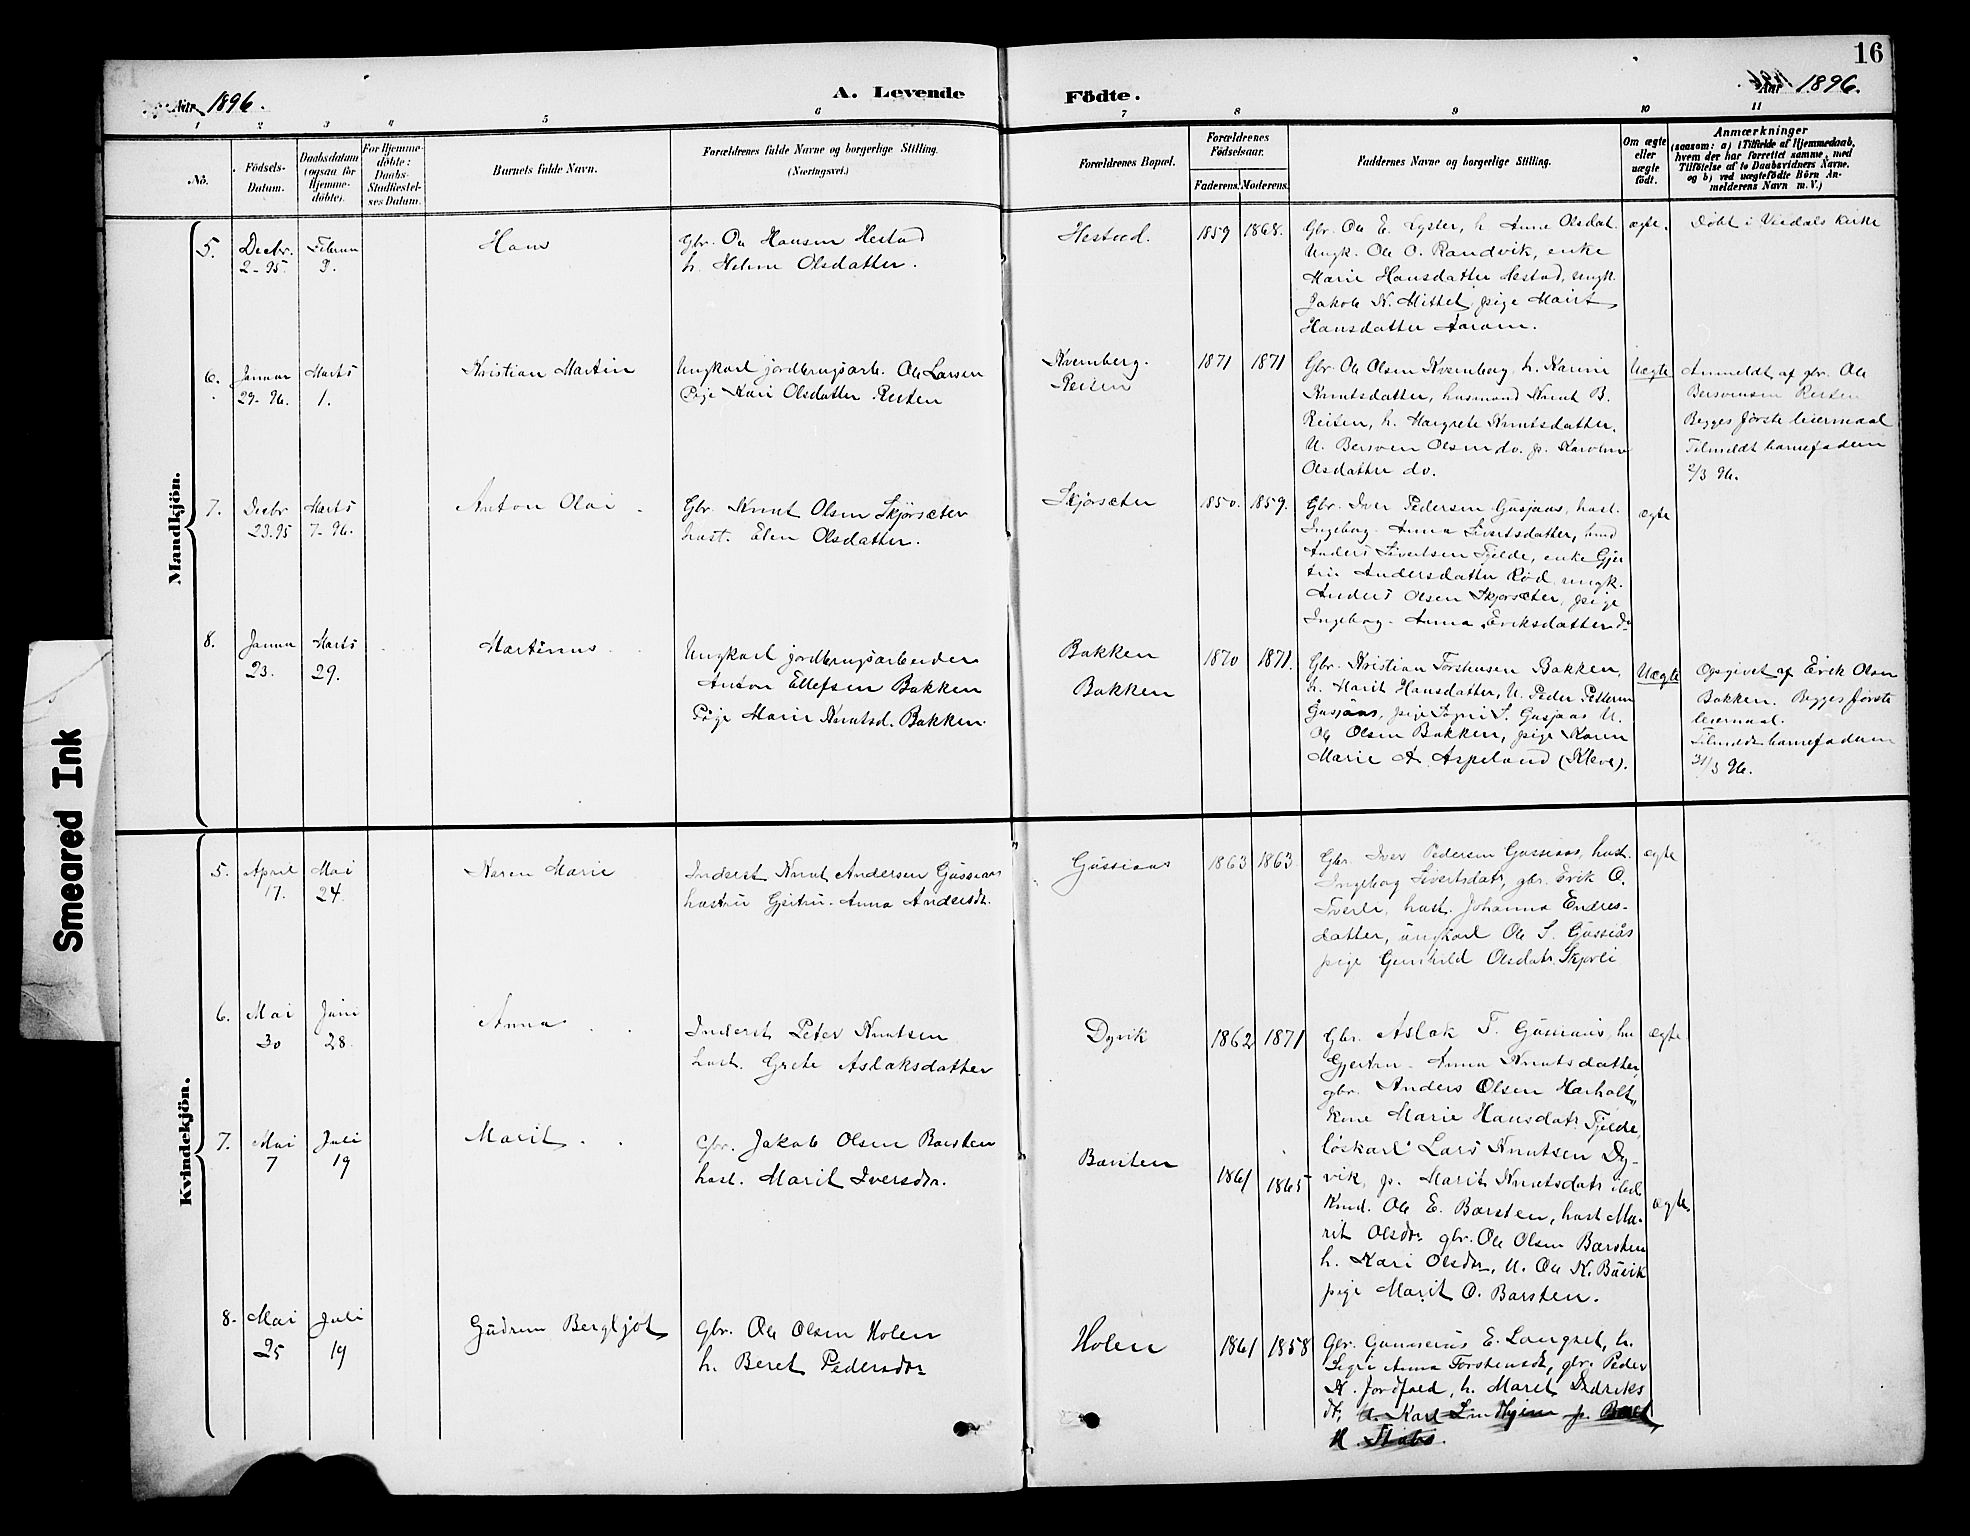 16
Aar 1896.
A. Levende
Födte.
Aar 1896.
1 2 3 4 5 6 7 8 9 10 11
No.
Födsels-
Datum.
Daabsdatum
(ogsaa for
Hjemme-
döbte).
For Hjemme-
döbte:
Daabs-
Stadfæstel-
ses Datum.
Barnets fulde Navn.
Forældrenes fulde Navne og borgerlige Stilling.
(Næringsvei.)
Forældrenes Bopæl.
Forældrenes
Födselsaar.
Faderens. Moderens.
Faddernes Navne og borgerlige Stilling.
Om ægte
eller
uægte
født.
Anmærkninger
(saasom: a) i Tilfælde af Hjemmedaab,
hvem der har forrettet samme, med
Tilföielse af to Daabsvidners Navne.
og b) ved uægtefödte Börn An-
melderens Navn m. V.)
Mandkjön.
5.
Decbr.
2-95.
Februar
9.
Hans
Gbr. Ole Hansen Hestad
h. Helene Olsdatter.
Hestad.
1859 1868.
Gbr. Ole E. Lyster, h. Anne Olsdat.
Ungk. Ole O. Randvik, enke
Marie Hansdatter Hestad, ungk.
Jakob N. Mittet, pige Marit
Hansdatter Aaram.
ægte.
Døbt i Veidals kirke
6.
Januar
29-96.
Marts
1.
Kristian Martin
Ungkarl jordbrugsarb. Ole Larsen
Pige Kari Olsdatter Reiten
Kvernberg.
Reiten
1871 1871
Gbr. Ole Olsen Kvernberg, h. Karine
Knutsdatter, husmand Knut B.
Reiten, h. Margrete Knutsdatter,
U. Bersven Olsen do. p. Karoline
Olsdatter do.
Uægte
Anmeldt af gbr. Ole
Bersvensen Reiten
Begges første leiermaal
Tilmeldt barnefaderen
2/3 96.
7.
Decbr
23.95
Marts
7-96.
Anton Olai
Gbr. Knut Olsen Skjørsæter
hust. Elen Olsdatter.
Skjørsæter
1850. 1859.
Gbr. Iver Pedersen Gusjaas, hust.
Ingeborg-Anna Sivertsdatter,
Anders Sivertsen Fjelde, enke Gjer
tru Andersdatter Rød, ungk.
Anders Olsen Skjørsæter, pige
Ingeborg-Anna Eriksdatter Do
ægte
8.
Januar
23.
Marts
29.
Martinus
Ungkarl jordbrugsarbeider
Anton Ellefsen Bakken
Pige Marie Knutsd. Bakken.
Bakken
Bakken
1870 1871.
Gbr. Kristian Torstensen Bakken,
h. Marit Hansdatter, U. Peder Pettersen
Gusjaas, pige Sigri S. Gusjaas U.
Ole Olsen Bakken, pige Karen
Marie A. Aspelund (Kleve).
Uægte
Opgivet af Erik Olsen
Bakken. Begges første
leiermaal.
Tilmeldt barnefaderen
31/3 96.
Kvindekjön.
5.
April
17.
Mai
24
Karen Marie
Inderst Knut Andersen Gussiaas
hustru Gjertru-Anna Andersdr.
Gussiaas
1863 1863
Gbr. Iver Pedersen Gussiaas, hust.
Ingeborg Sivertsdatr, gbr. Erik O.
Tverli, hust. Johanna Endres-
datter, ungkarl Ole S. Gussiås
pige Gunhild Olsdatr Skjørli
ægte
6.
Mai
30
Juni
28.
Anna
Inderst Peter Knutsen
hust. Grete Aslaksdatter
Dyvik
1862 1871
Gbr. Aslak T. Gussiaas, hu
Gjertru-Anna Knutsdatter,
gbr. Anders Olsen Harholt,
kone Marie Hansdatr Fjelde,
løskarl Lars Knutsen Dy-
vik, p. Marit Knutsdatr ibid.
ægte
7.
Mai
7
Juli
19
Marit
Gbr. Jakob Olsen Barsten
hust. Marit Iversdr.
Barsten
1861 1865
Kmd. Ole E. Barsten, hust Ma-
rit Olsdr. gbr. Ole Olsen Barsten
h. Kari Olsdr., U. Ole K. Buvik
pige Marit O. Barsten.
ægte.
8.
Mai
25
Juli
19
Gudrun Bergljot
Gbr. Ole Olsen Holen
h. Beret Pedersdr
Holen
1861 1858
Gbr. Gunnerus E. Langset, h.
Sigri Anna Torstensdt, gbr. Peder
N. Jordfald, h. Marit Didriks
dt,
Smeared Ink